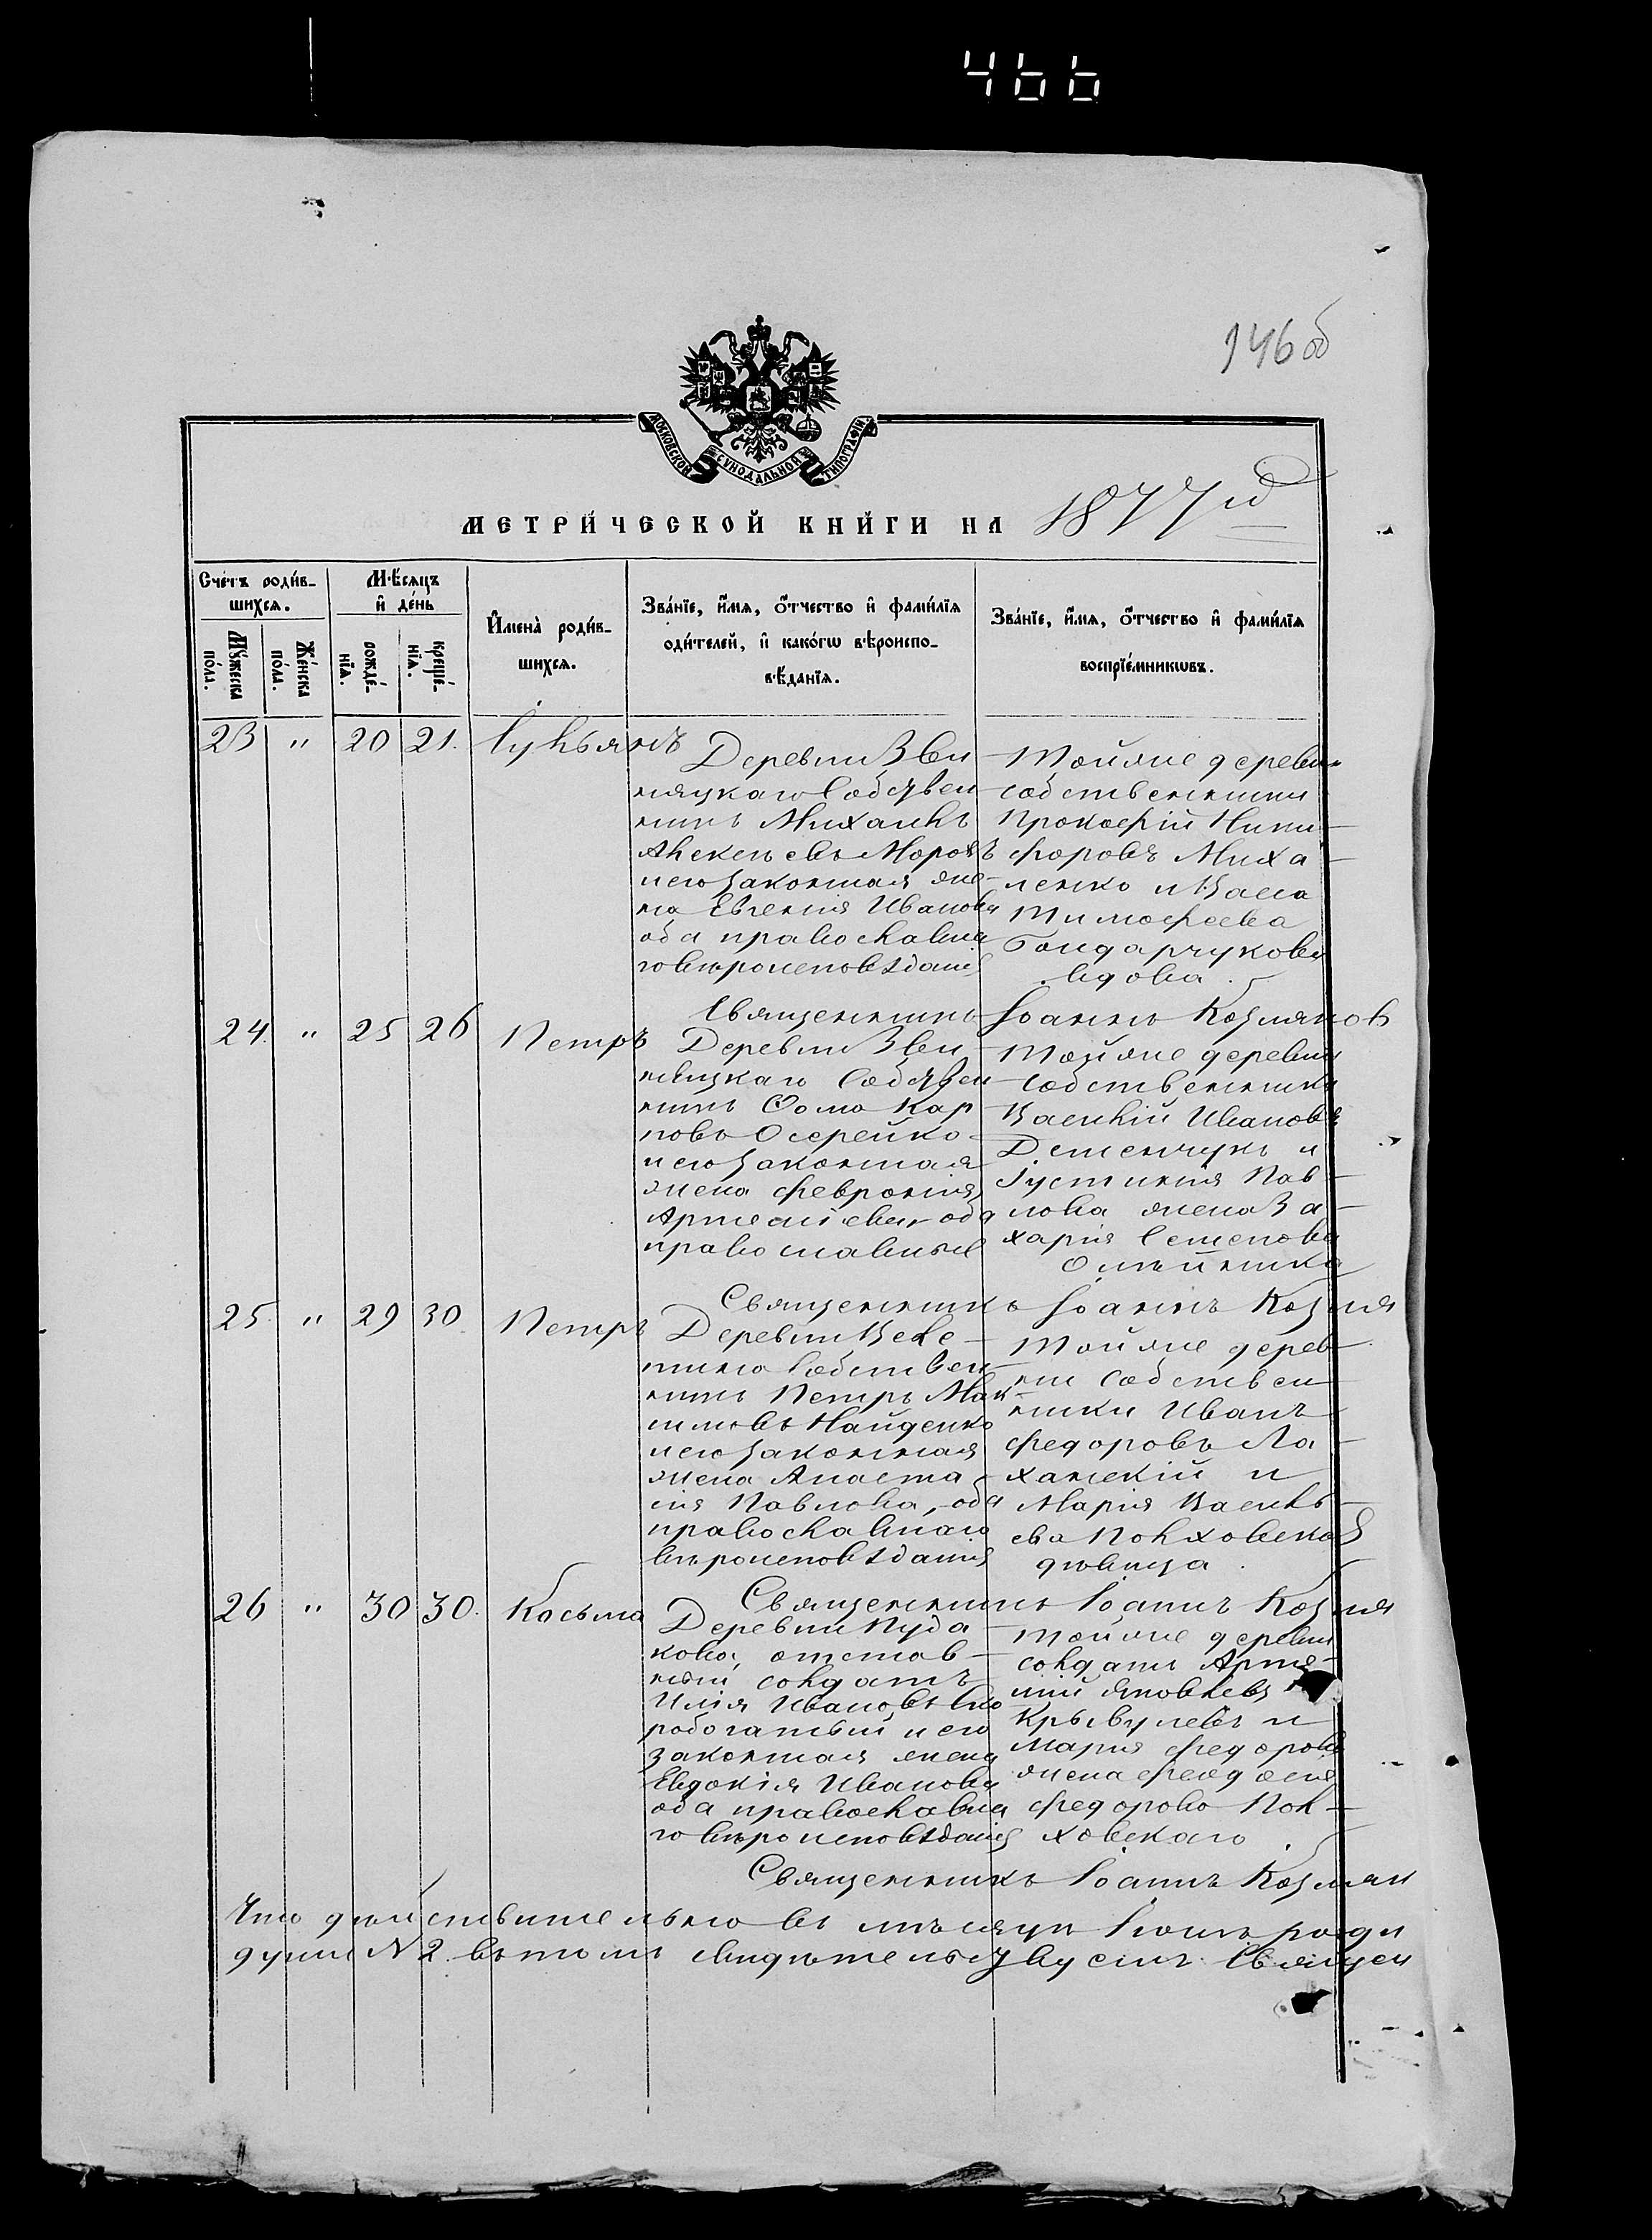 466
146 об
МОСКОВСКОЙ СѴНОДАЛЬНОЙ ТИПОГРАФІИ
МЕТРИ́ЧЕСКОЙ КНИ́ГИ НА 1877 й
Сче́тъ роди́в-
шихсѧ.
Мꙋ́жеска
по́ла.
Же́нска
по́ла.
Мѣ́сѧцъ
и҆ де́нь
рожде́-
нїѧ.
креще́-
нїѧ.
И҆мена̀ роди́в-
шихсѧ.
Зва́нїе, и҆́мѧ, ѻ҆́тчество и҆ фами́лїѧ
оди́телей, и҆ како́гѡ вѣроиспо-
вѣ́данїѧ.
Зва́нїе, и҆́мѧ, ѻ҆́тчество и҆ фами́лїѧ
воспрїе́мникѡвъ.
23 " 20 21. Лукьянъ
Деревни Зви-
няцкаго Собствен
никъ Михаилъ
Алексеевъ Морозъ
и его законная же-
на Евгенія Иванова
оба православна
го вѣроисповѣданія
Той же деревни
собственники
Прокофій Ники-
форовъ Миха-
ленко и Васса
Тимофеева
Бондарчукова
вдова.
Священникъ Іоаннъ Козмянов
24. " 25 26 Петръ
Деревни Зви-
няцкаго Собствен
никъ Фома Кар
повъ Осерейко-
и его законная
жена Феврония
оба
православныя
Той же деревни
собственники
Василій Ивановъ
Деменчукъ и
Іустинія Пав-
лова жена За-
харія Семенова
Олѣйника
Священникъ Іоаннъ Козмя
25. " 29 30 Петръ
Деревни
Собствен-
никъ Петръ Мак-
симовъ Найденко
и его законная
жена Анаста-
сія Павлова, оба
православнаго
вѣроисповѣданія
Той же дерев-
ни Собствен
ники Иванъ
Федоровъ Ла-
ханскій и
Марія Василь-
ева Полховская
дѣвица.
Священникъ Іоаннъ Козмя
26 " 30 30. Косьма
Деревни Пуда-
кова, отстав-
ный солдатъ
Илія Ивановъ Ско
робогатый и его
законная жена
Евдокія Иванова
оба православна
го вѣроисповѣданія
Той же деревни
солдатъ Арте-
мій Яковлевъ
и
Марія Федорова
жена Феодосія
Федорова Пол-
ховскаго.
Священникъ Іоаннъ Козмян
Что дѣйствительно въ мѣсяцѣ Іюнѣ роди
душъ № 2. въ томъ свидѣтельствуемъ. Священ